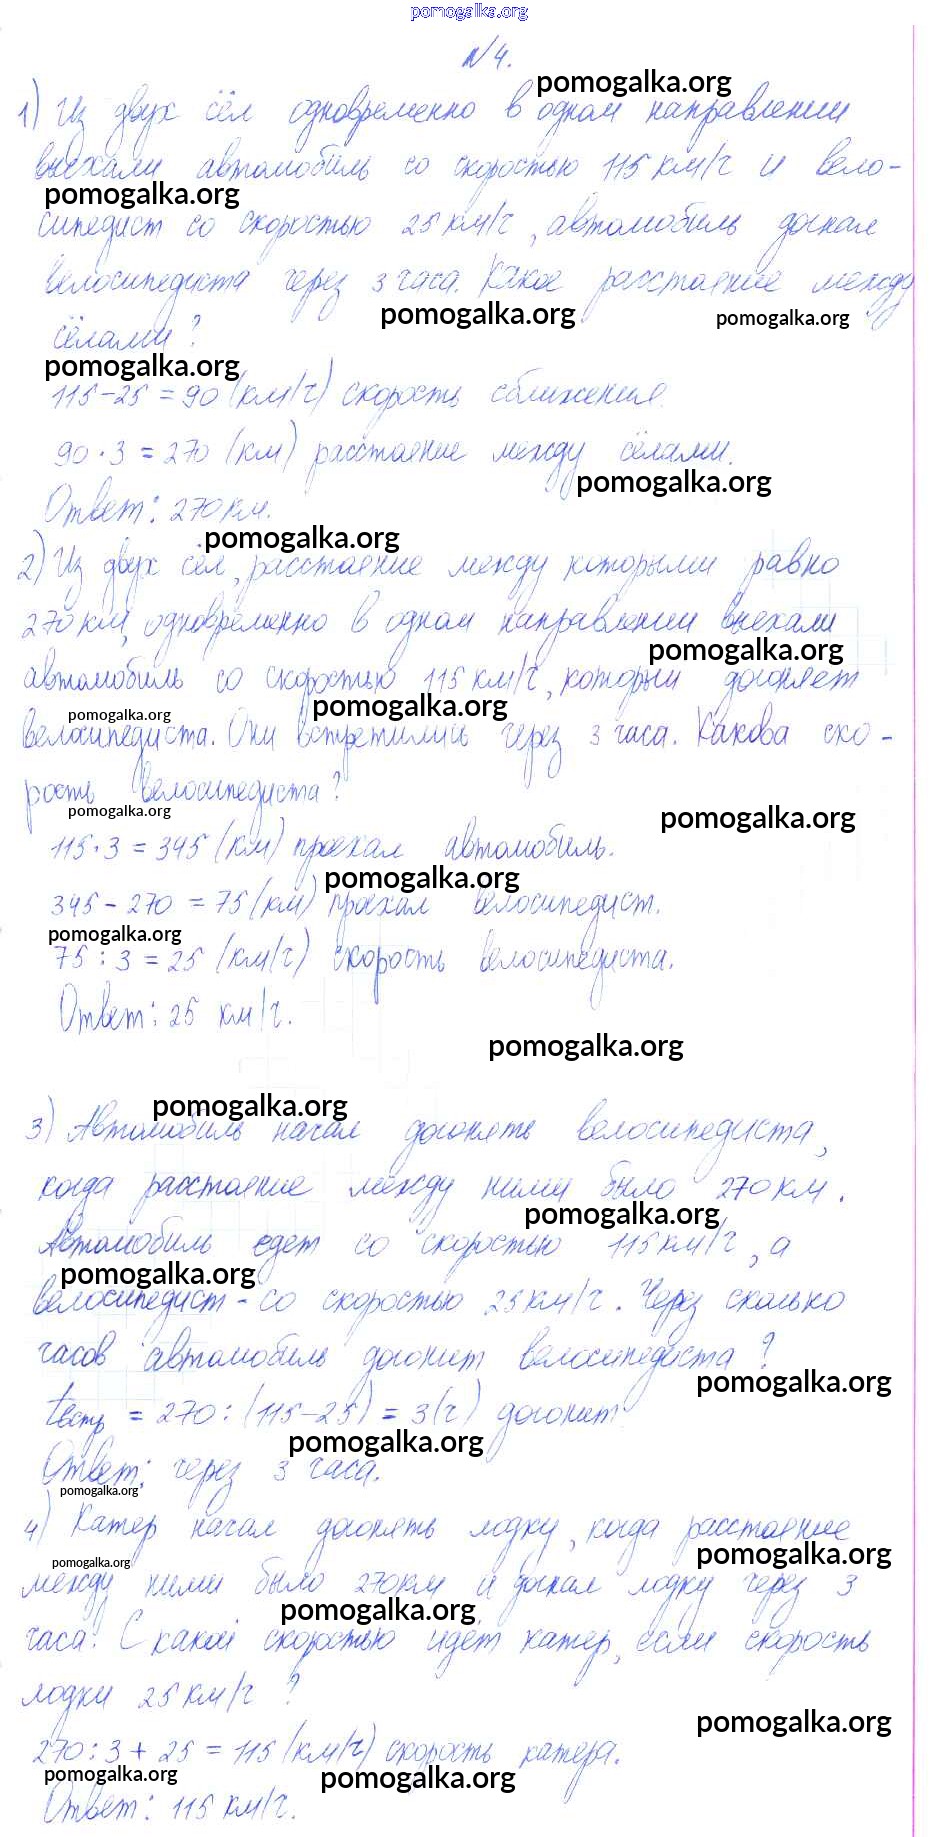 pomogalka.org
№4.
pomogalka.org
1) Из двух сёл одновременно в одном направлении
выехали автомобиль со скоростью 115 км/ч и вело-
pomogalka.org
сипедист со скоростью 25 км/ч, автомобиль догнал
велосипедиста через 3 часа. Какое расстояние между
pomogalka.org pomogalka.org
сёлами?
pomogalka.org
115 - 25 = 90 (км/ч) скорость сближения.
90 · 3 = 270 (км) расстояние между сёлами.
pomogalka.org
Ответ: 270 км.
pomogalka.org
2) Из двух сёл, расстояние между которыми равно
270 км, одновременно в одном направлении выехали
pomogalka.org
автомобиль со скоростью 115 км/ч, который догоняет
pomogalka.org pomogalka.org
велосипедиста. Они встретились через 3 часа. Какова ско-
рость велосипедиста?
pomogalka.org pomogalka.org
115 · 3 = 345 (км) проехал автомобиль.
pomogalka.org
345 - 270 = 75 (км) проехал велосипедист.
pomogalka.org
75 : 3 = 25 (км/ч) скорость велосипедиста.
Ответ: 25 км/ч.
pomogalka.org
pomogalka.org
3) Автомобиль начал догонять велосипедиста,
когда расстояние между ними было 270 км.
pomogalka.org
Автомобиль едет со скоростью 115 км/ч, а
pomogalka.org
велосипедист - со скоростью 25 км/ч. Через сколько
часов автомобиль догонит велосипедиста?
pomogalka.org
tвстр = 270 : (115 - 25) = 3 (ч) догонит.
pomogalka.org
Ответ: через 3 часа.
pomogalka.org
4) Катер начал догонять лодку, когда расстояние
pomogalka.org pomogalka.org
между ними было 270 км и догнал лодку через 3
pomogalka.org
часа. С какой скоростью идёт катер, если скорость
лодки 25 км/ч?
pomogalka.org
270 : 3 + 25 = 115 (км/ч) скорость катера.
pomogalka.org pomogalka.org
Ответ: 115 км/ч.